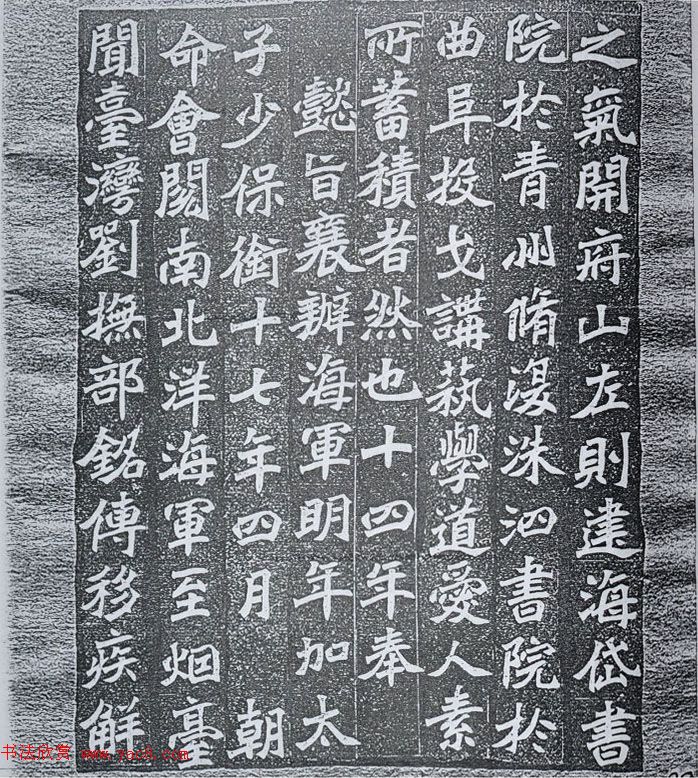 之氣開府山左則建海岱書
院於青州脩復洙泗書院於
曲阜投戈講蓺學道愛人素
所蓄積者然也十四年奉
懿旨襄辦海軍明年加太
子少保銜十七年四月 朝
命會閱南北洋海軍至烟臺
聞臺灣劉撫部銘傳移疾解
书法欣赏 www.yac8.com